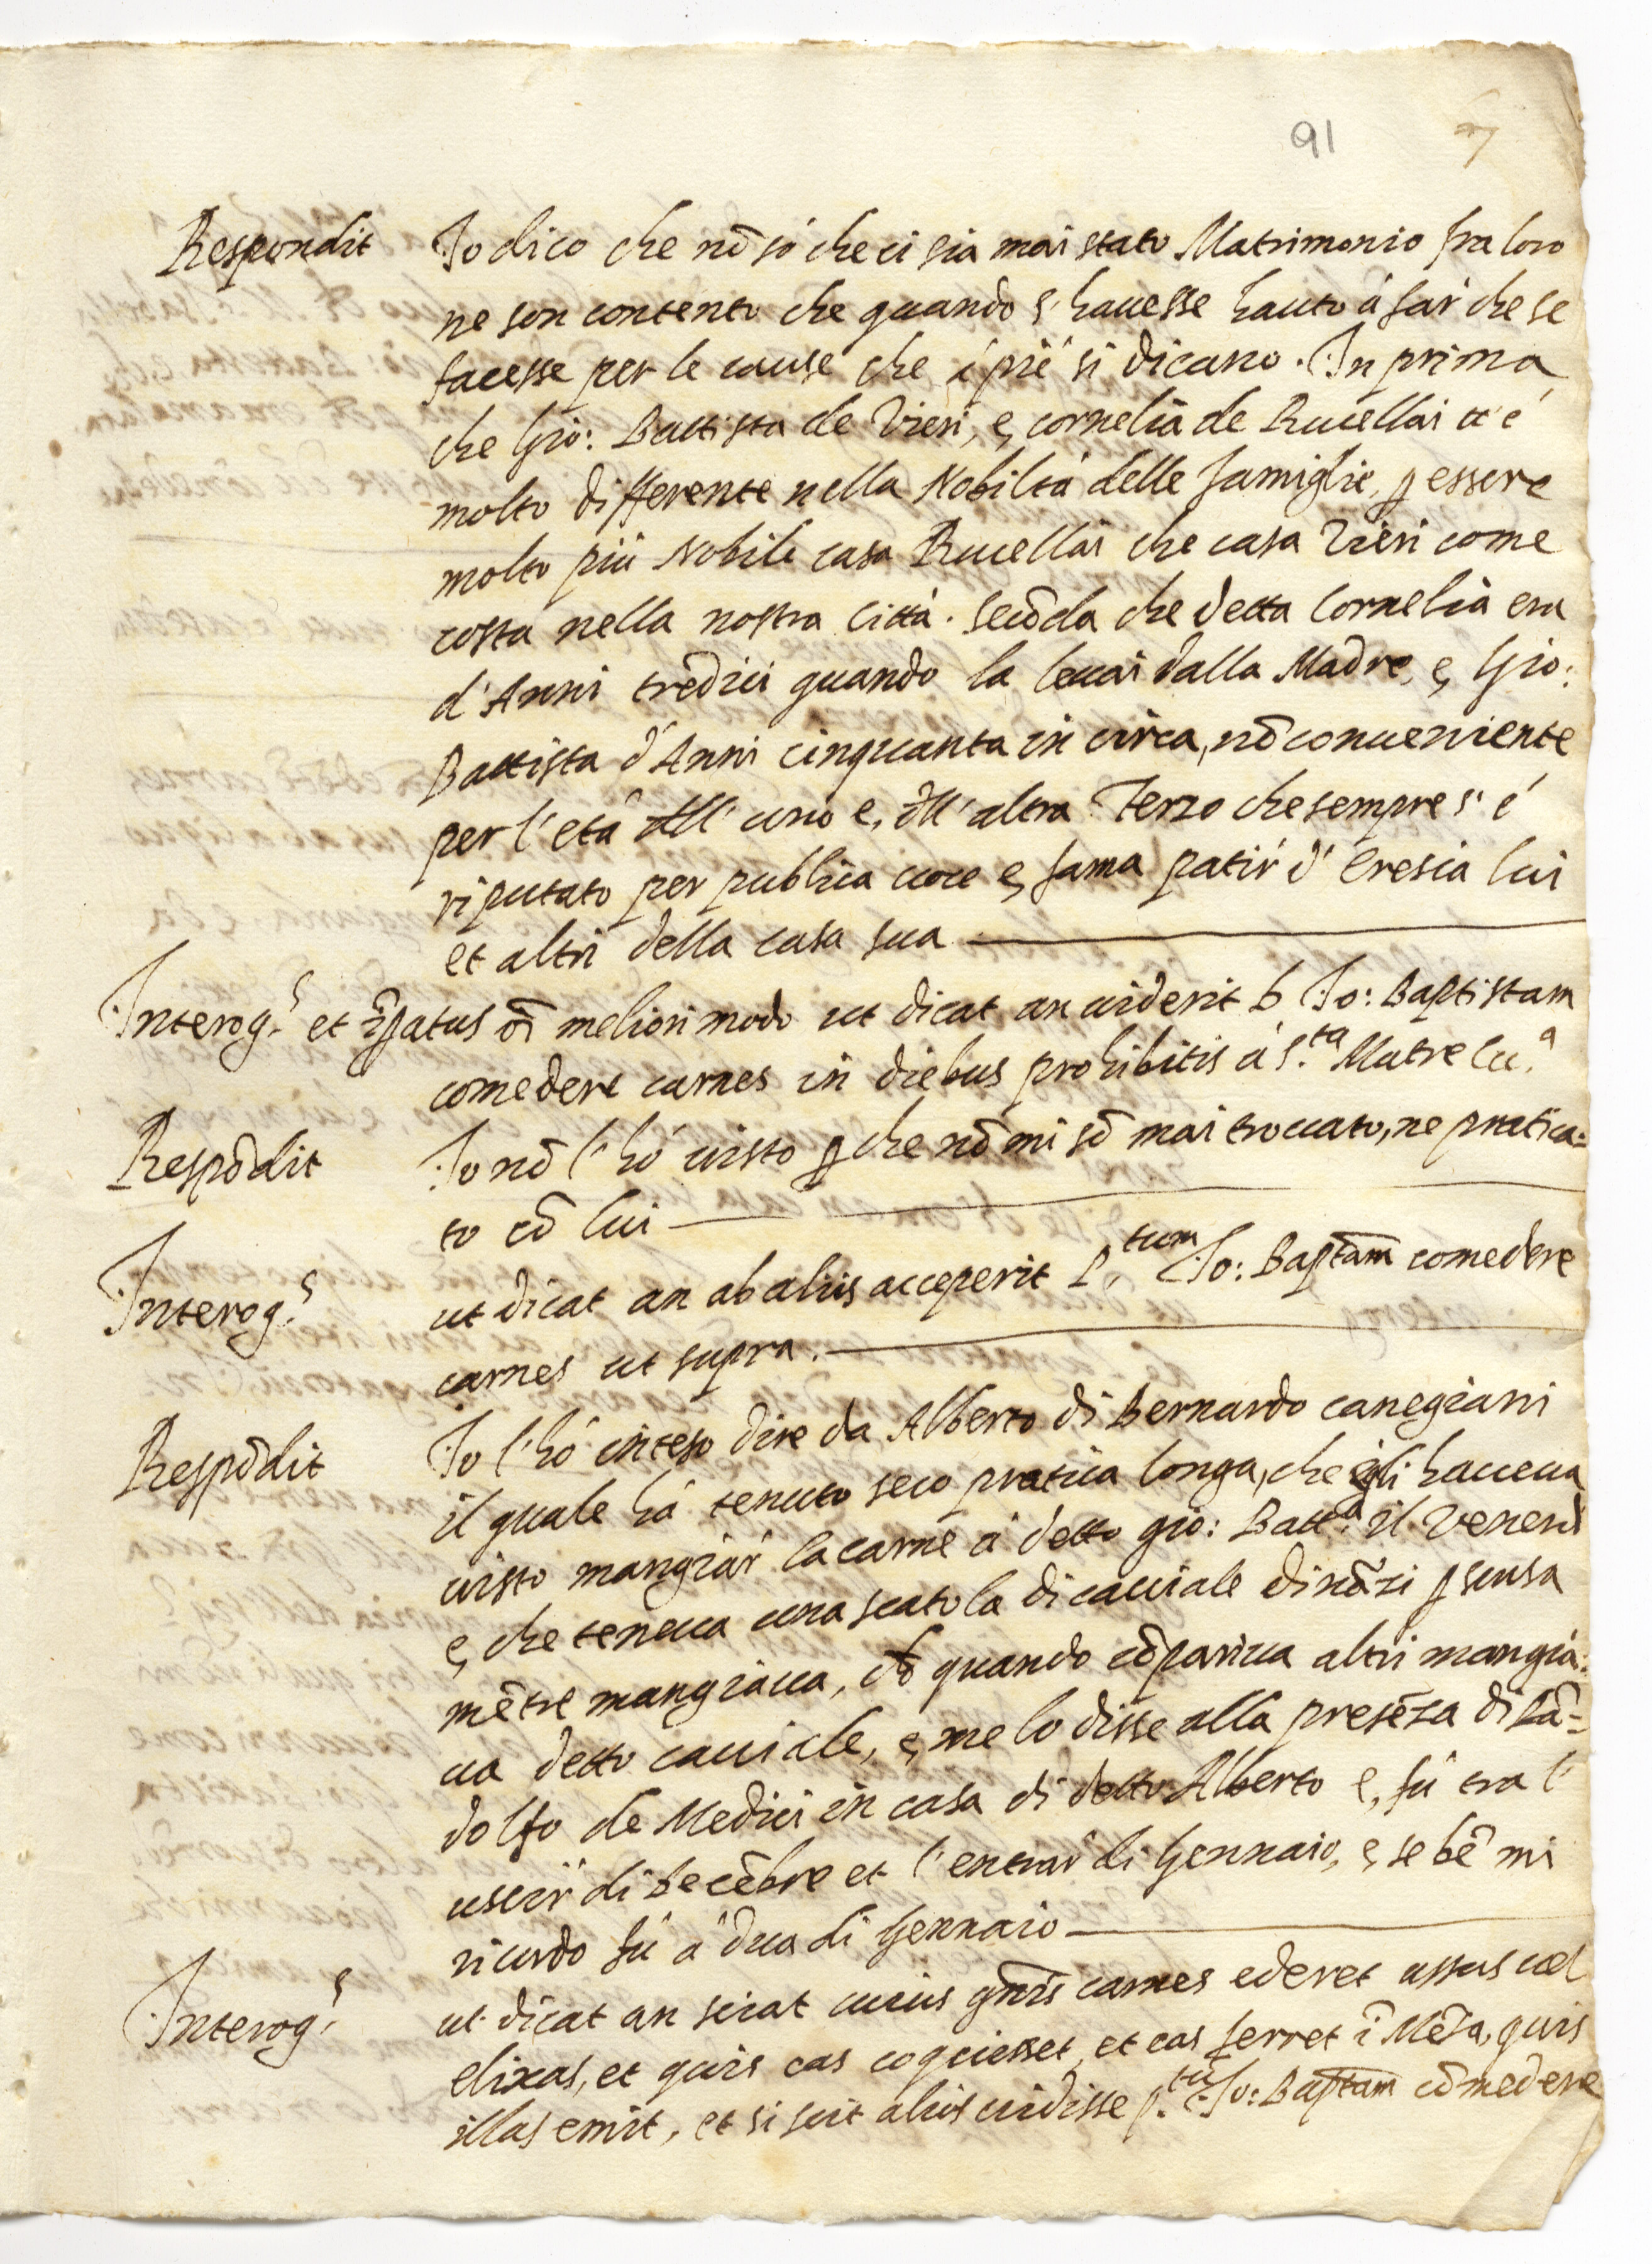 91 7
Respondit Io dico che nō só che ci sia mai stato Matrimonio fra loro
ne son contento che quando s'hauesse hauto á far' che se
facesse per le cause che í piè si dicano. In prima
che Gio: Battista de Vieri, e, cornelia de Rucellai
molto differente nella Nobiltá delle famiglie, ꝑ essere
molto piú Nobile casa Rucellai che casa Vieri come
costa nella nostra Cittá. Secōda che detta Cornelia era
d'Anni tredici quando la leuai dalla Madre, e, Gio:
Battista d'Anni cinquanta in circa, nō conueniente
per l'etá dll' uno e, dll' altra Terzo che sempre s'é
riputato per publica uoce e, fama patir' d'Eresia lui
et altri della casa sua
Interog.s et īstatus oī meliori modo ut dicat an uiderit D Io: Baptistam
comedere carnes in diebus prohibitis á S.ta Matre Ecc.a
Respōdit Io nō l'hó uisto ꝑche nō mi sō mai trouato, ne pratica=
to cō lui
Interog.s ut dicat an ab aliis acceperit P.tum Io: Baptam̄ comedere
carnes ut supra.
Respōdit Io l'hó inteso dire da Alberto di Bernardo canegiani
il quale há tenuto seco pratica longa, che egli haueua
uisto mangiar' la carne á detto gio: Batt.a il Venerdi
e, che teneua una scatola di cauiale dināzi ꝑ scusa
mētre mangiaua, et quando cōpariua altri mangia=
ua detto cauiale, e, me lo disse alla presēza di Lā=
dolfo de Medici in casa di detto Alberto e, fú tra l'
uscir' di Decēbre et l'entrar' di Gennaio, e, se bē mi
ricordo fú á dua di Gennaio
Interog.s ut dicat an sciat cuius gn̄is carnes ederet assas uel
elixas, et quis eas coquisset, et eas ferret ī Mēsa, quis
illas emit, et si scit alios uidisse p.tū Io: Baptam̄ cōmedere